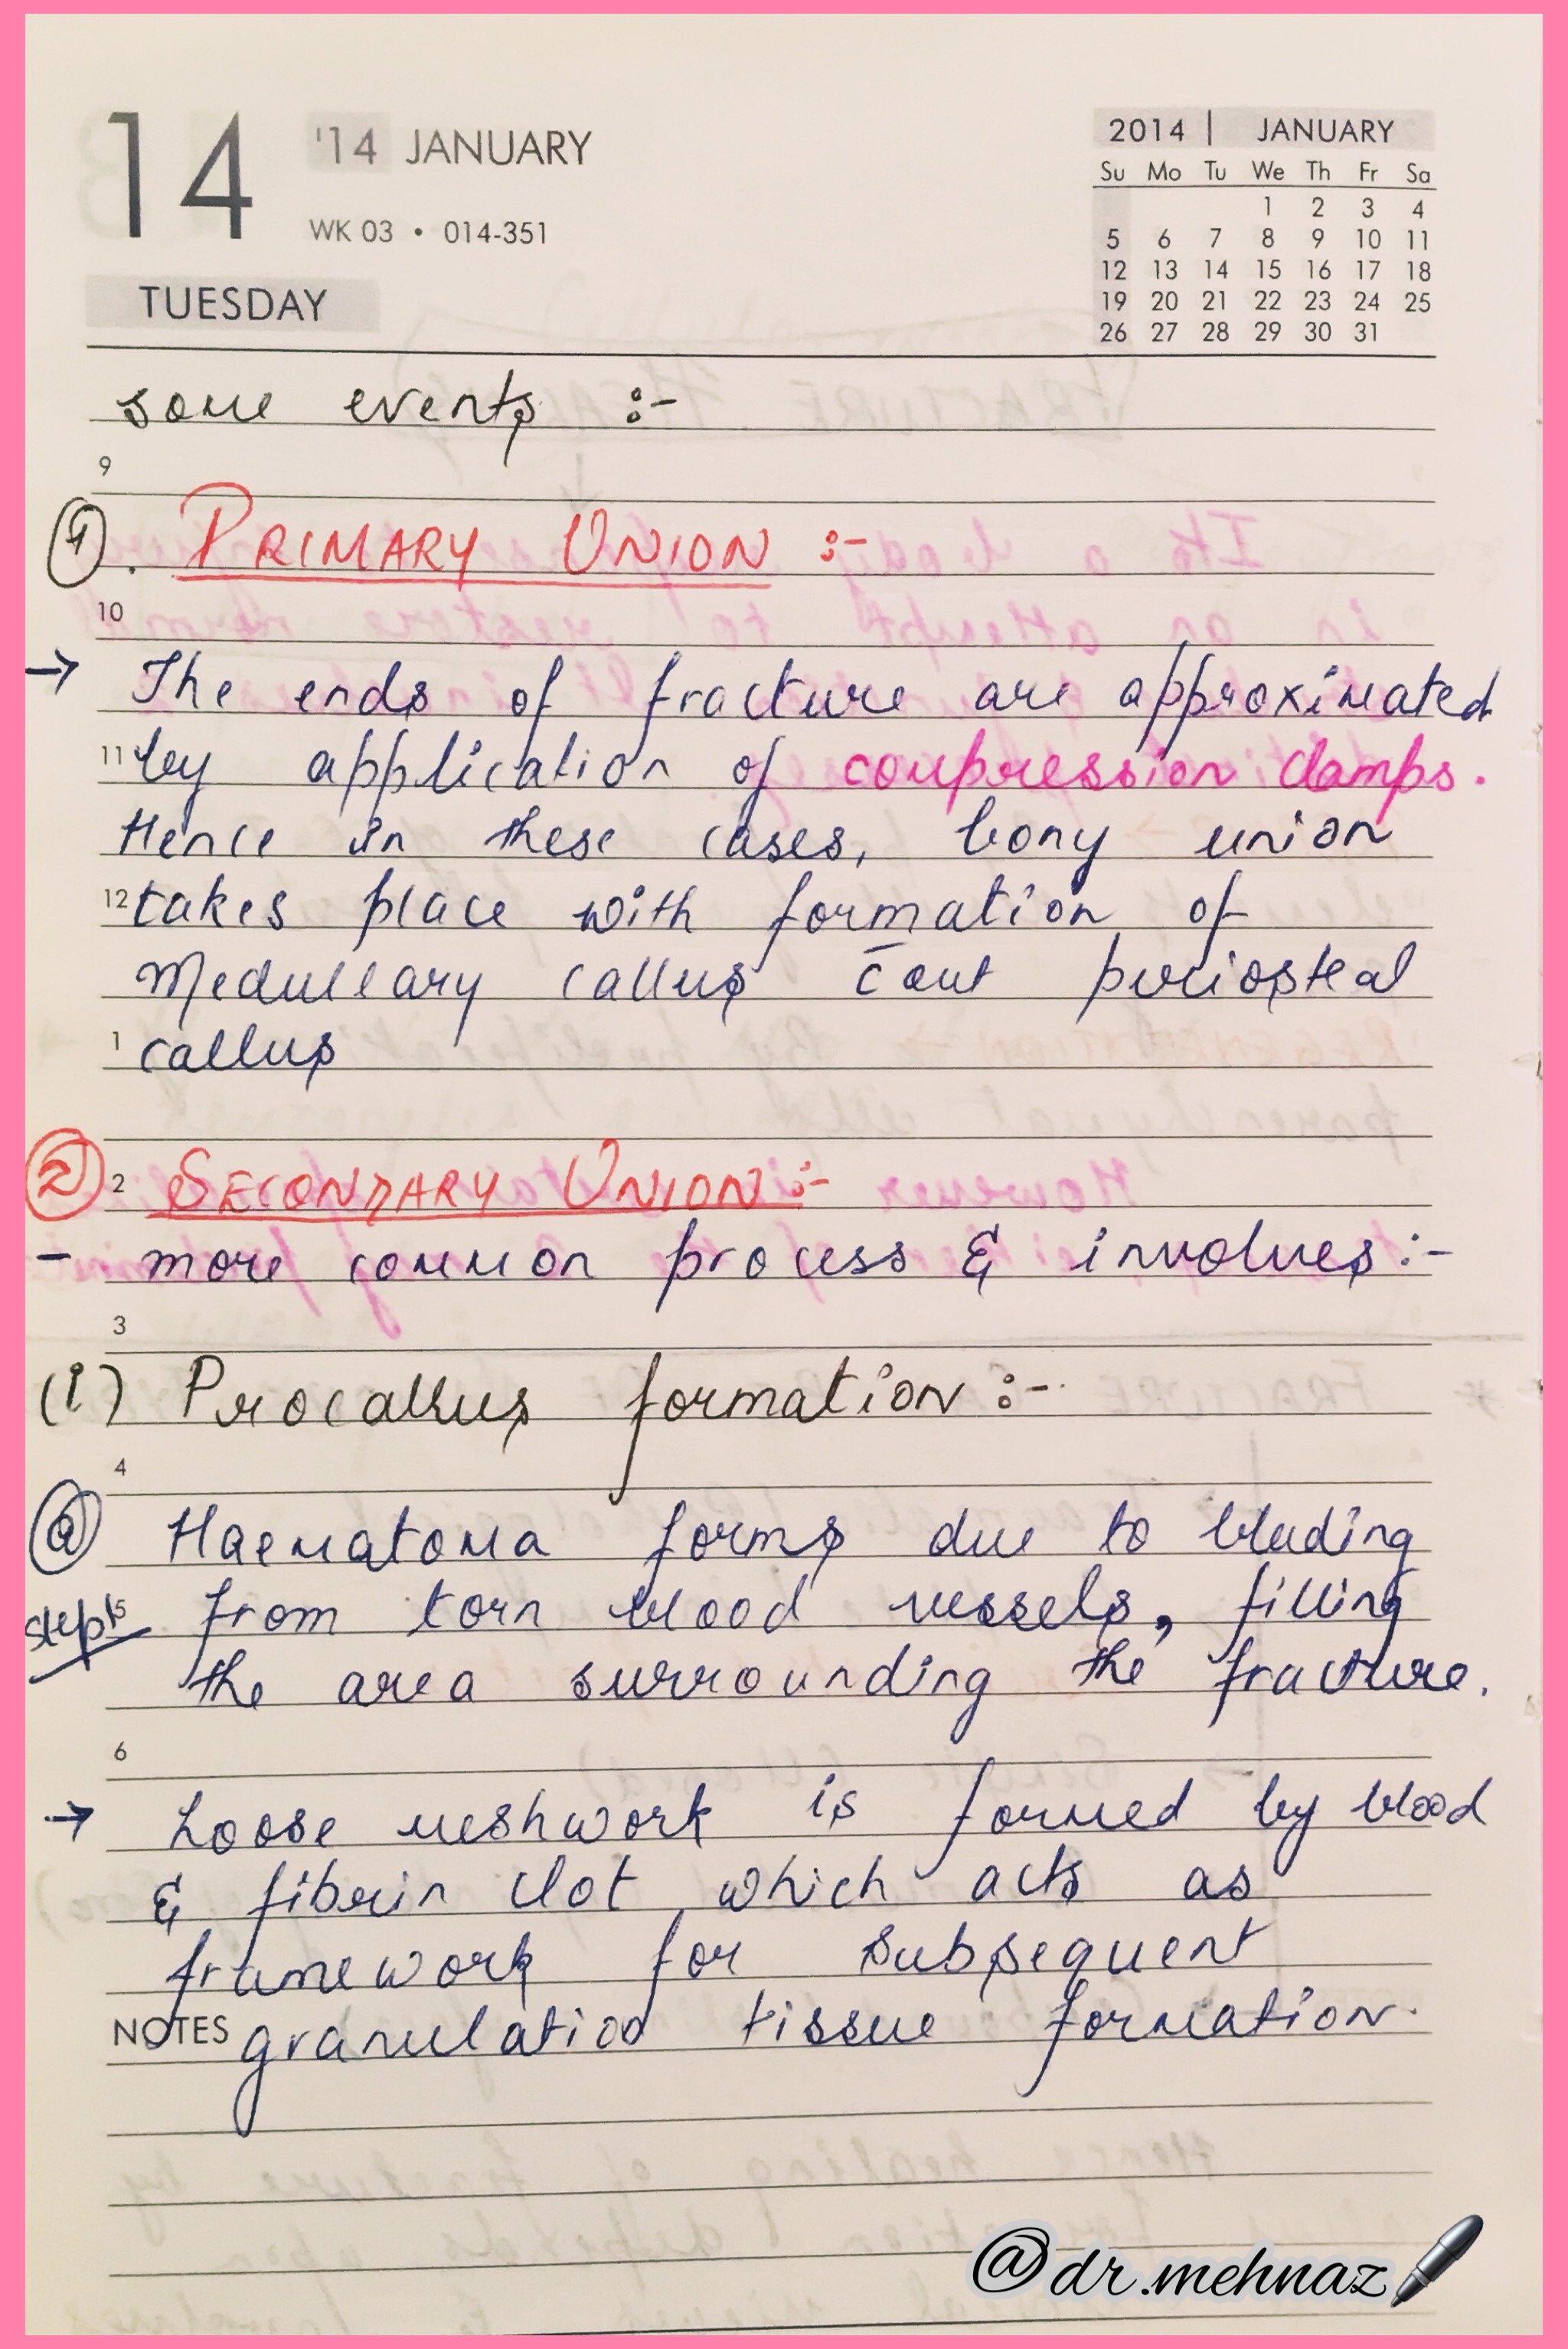 14 '14 JANUARY
WK 03 • 014-351
TUESDAY
2014 | JANUARY
Su Mo Tu We Th Fr Sa
1 2 3 4
5 6 7 8 9 10 11
12 13 14 15 16 17 18
19 20 21 22 23 24 25
26 27 28 29 30 31
some events :-
9
1. PRIMARY UNION :-
10
→ The ends of fracture are approximated
11 by application of compression clamps.
Hence in these cases, bony union
12 takes place with formation of
Medullary callus c̄out periosteal
1 callus
2 2 SECONDARY UNION :-
- more common process & involves :-
3
(i) Procallus formation :-
4
a Haematoma forms due to bleeding
step 5 from torn blood vessels, filling
the area surrounding the fracture.
6
→ Loose meshwork is formed by blood
& fibrin clot which acts as
framework for subsequent
NOTES granulation tissue formation.
@dr.mehnaz